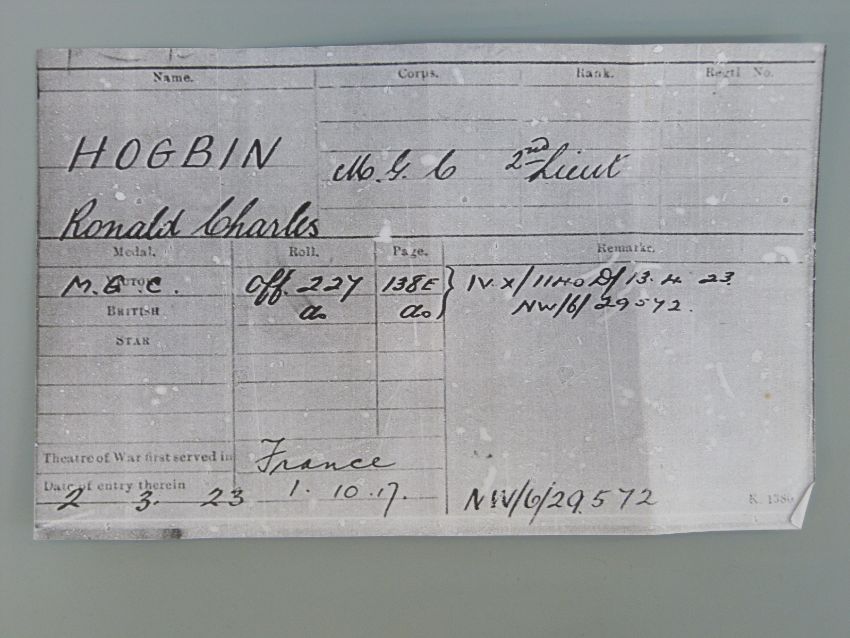 Name. Corps. Rank. Regtl No.
HOGBIN M.G.C 2nd Lieut
Ronald Charles
Medal. Roll. Page. Remarks.
M.G.C. Off. 227 138E } IV.X/1140 D/ 13.4.23.
BRITISH do do NW/6/29572.
STAR
Theatre of War first served in France
Date of entry therein 1.10.17.
2 3. 23 NW/6/29572 K. 1380